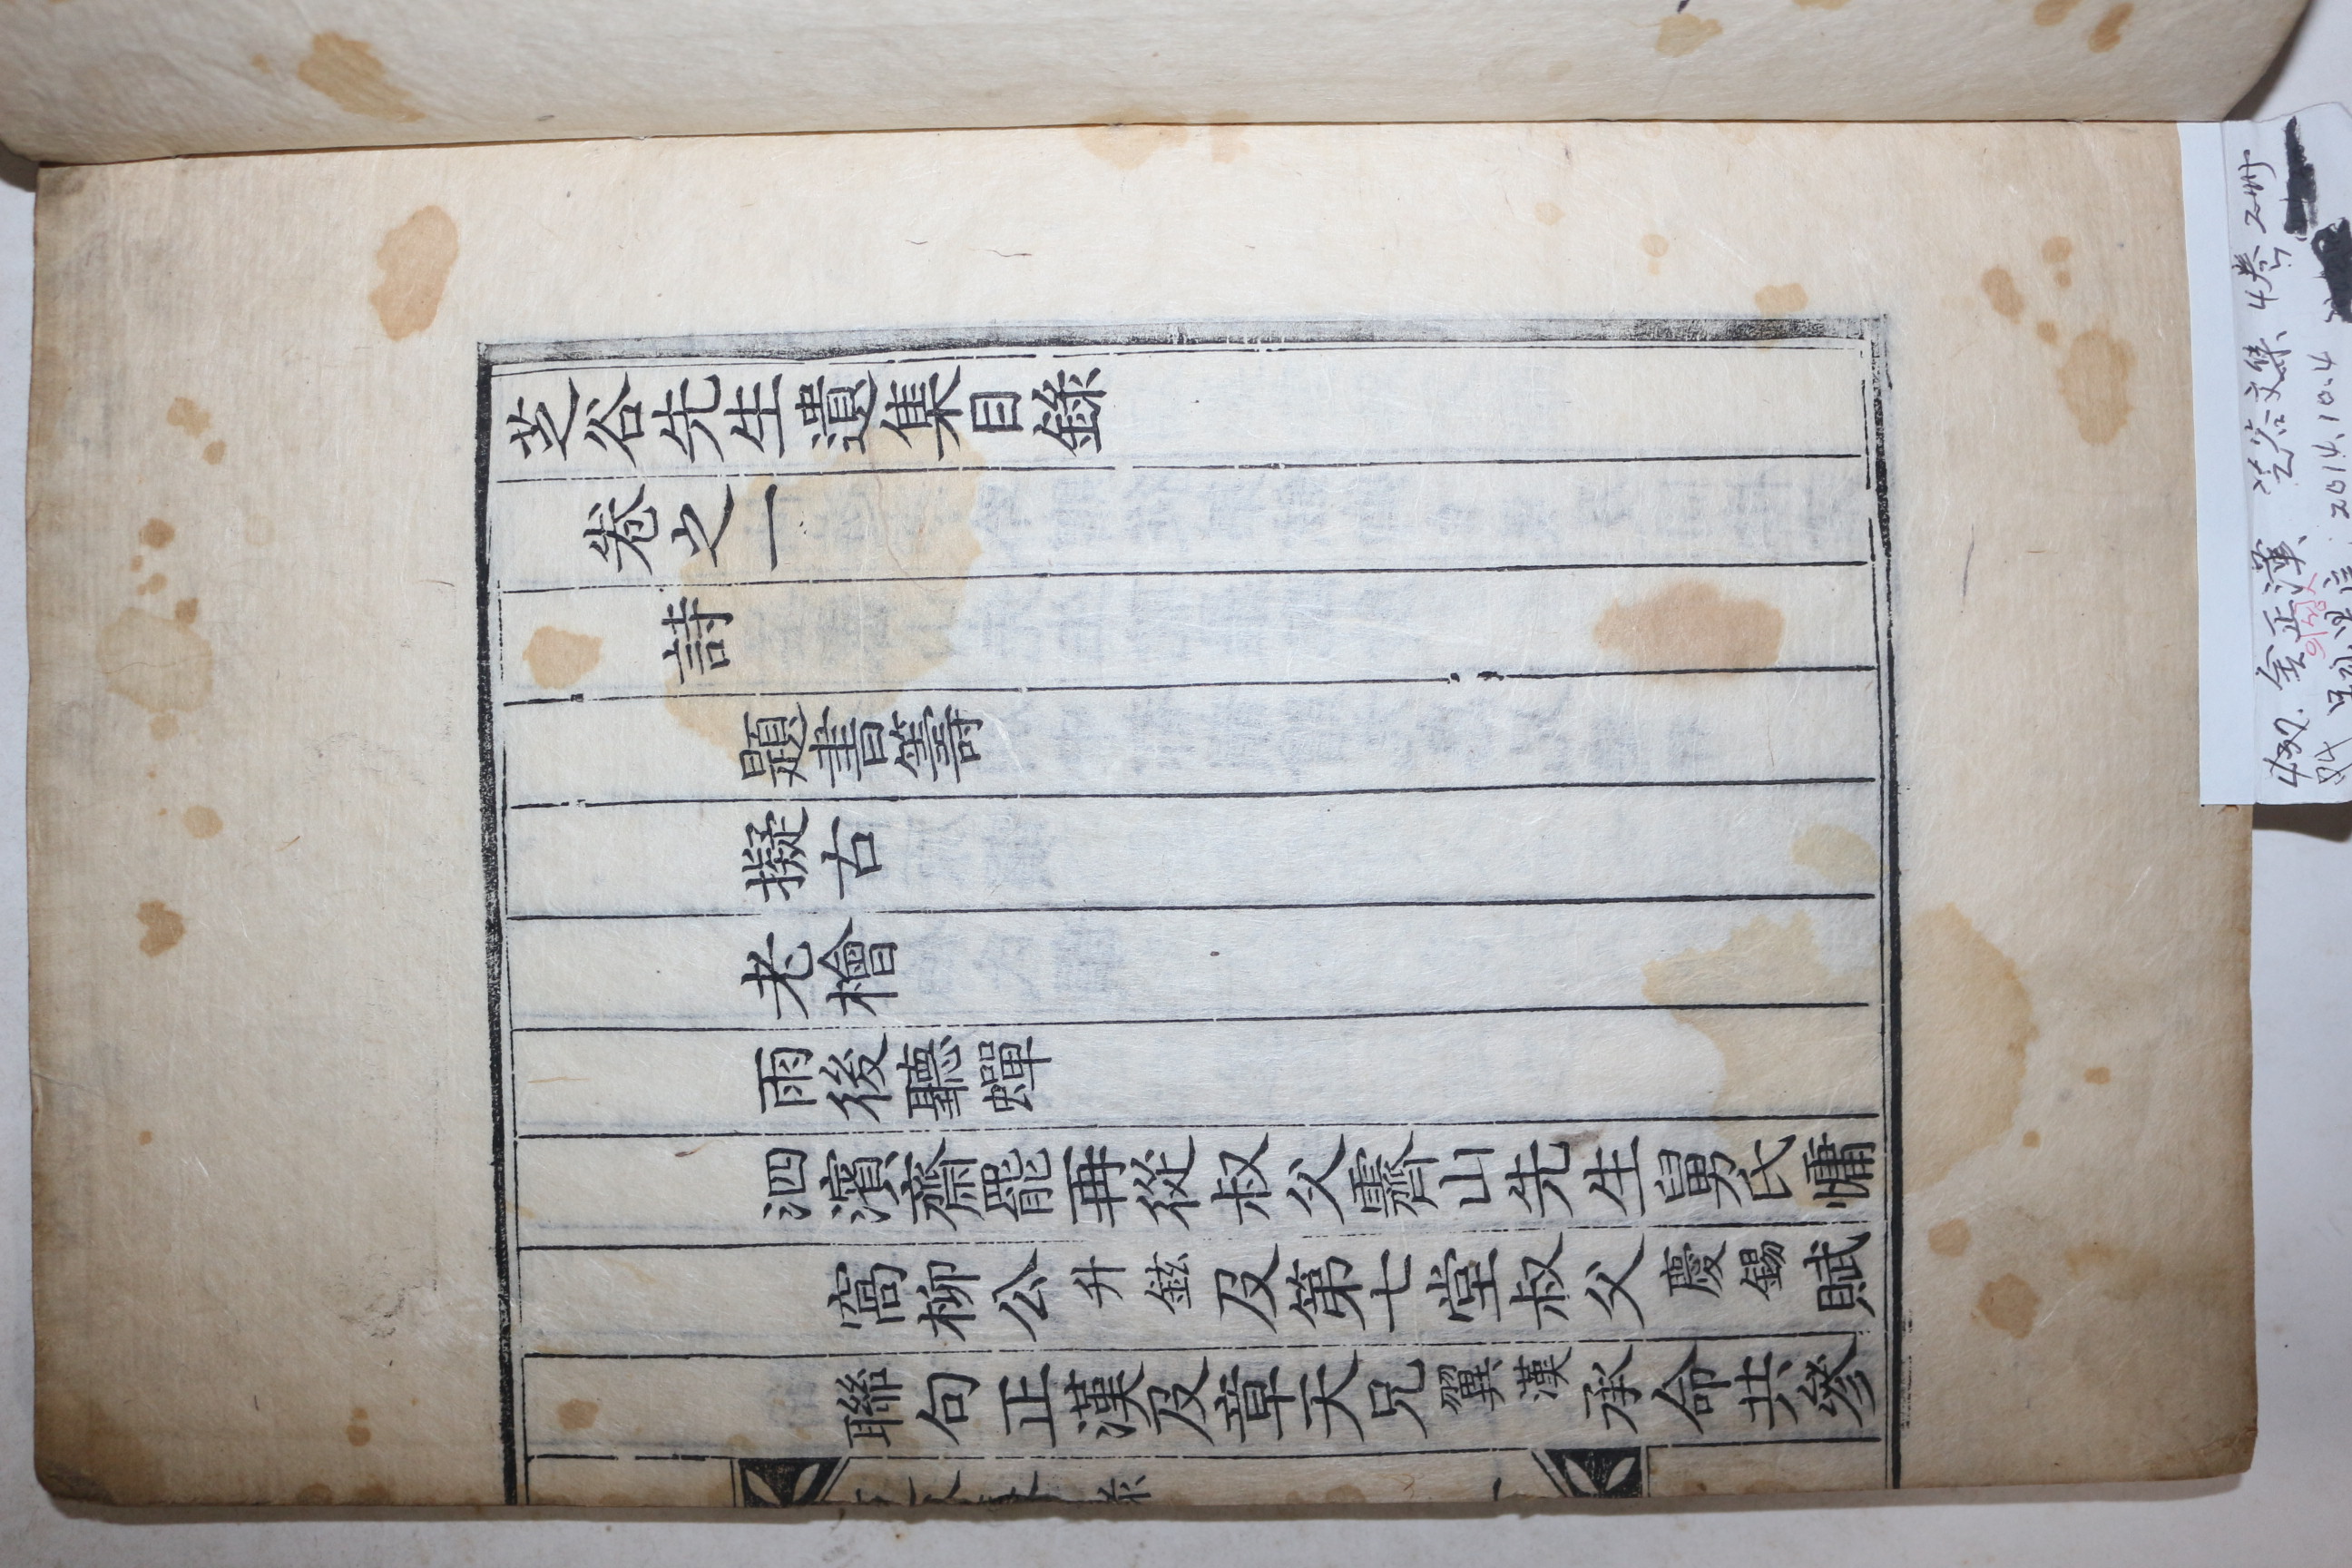 芝谷先生遺集目錄
卷之一
詩
題書籌
擬古
老檜
雨後聽蟬
泗濱齋罷再從叔父霽山先生舅氏慵
窩柳公升鉉及第七堂叔父慶錫賦
聯句正漢及章天兄翼漢承命共參
金正漢 芝谷文集 4卷 2册
의성人
2014.10.4